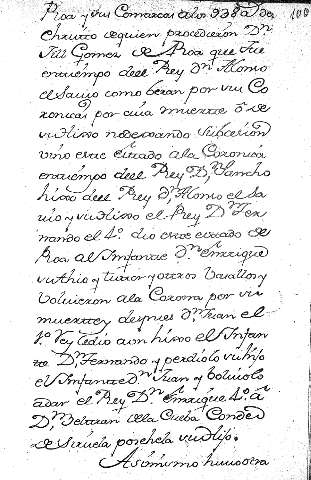 Roa y sus Comarcas a los 938 aᵒˢ de 100
Christo de quien procedieron Dⁿ
Gomez de Roa que fue
en tiempo del Rey Dⁿ Alonso
el Savio como beran por su Co
ronica por cuia muerte ō de
su hijo no dexando Subcesion
vino este estado a la Coronica
en tiempo del Rey Dⁿ Sancho
hijo del Rey Dⁿ Alonso el Sa
vio y su hijo el Rey Dⁿ Fer
nando el 4º dio este estado de
Roa al Infante Dⁿ Enrrique
su thio y tutor y otros Vasallos y
bolvieron a la Corona por su
muerte y despues Dⁿ Juan el
1º Rey le dio a un hijo el Infan
te Dⁿ Fernando y perdiolo su hijo
el Infante dⁿ Juan y bolviolo
a dar el Rey Dⁿ Enrrique 4º á
Dⁿ Beltran de la Cueba Conde d
de Siruela su hijo.
Asimismo huvo otra